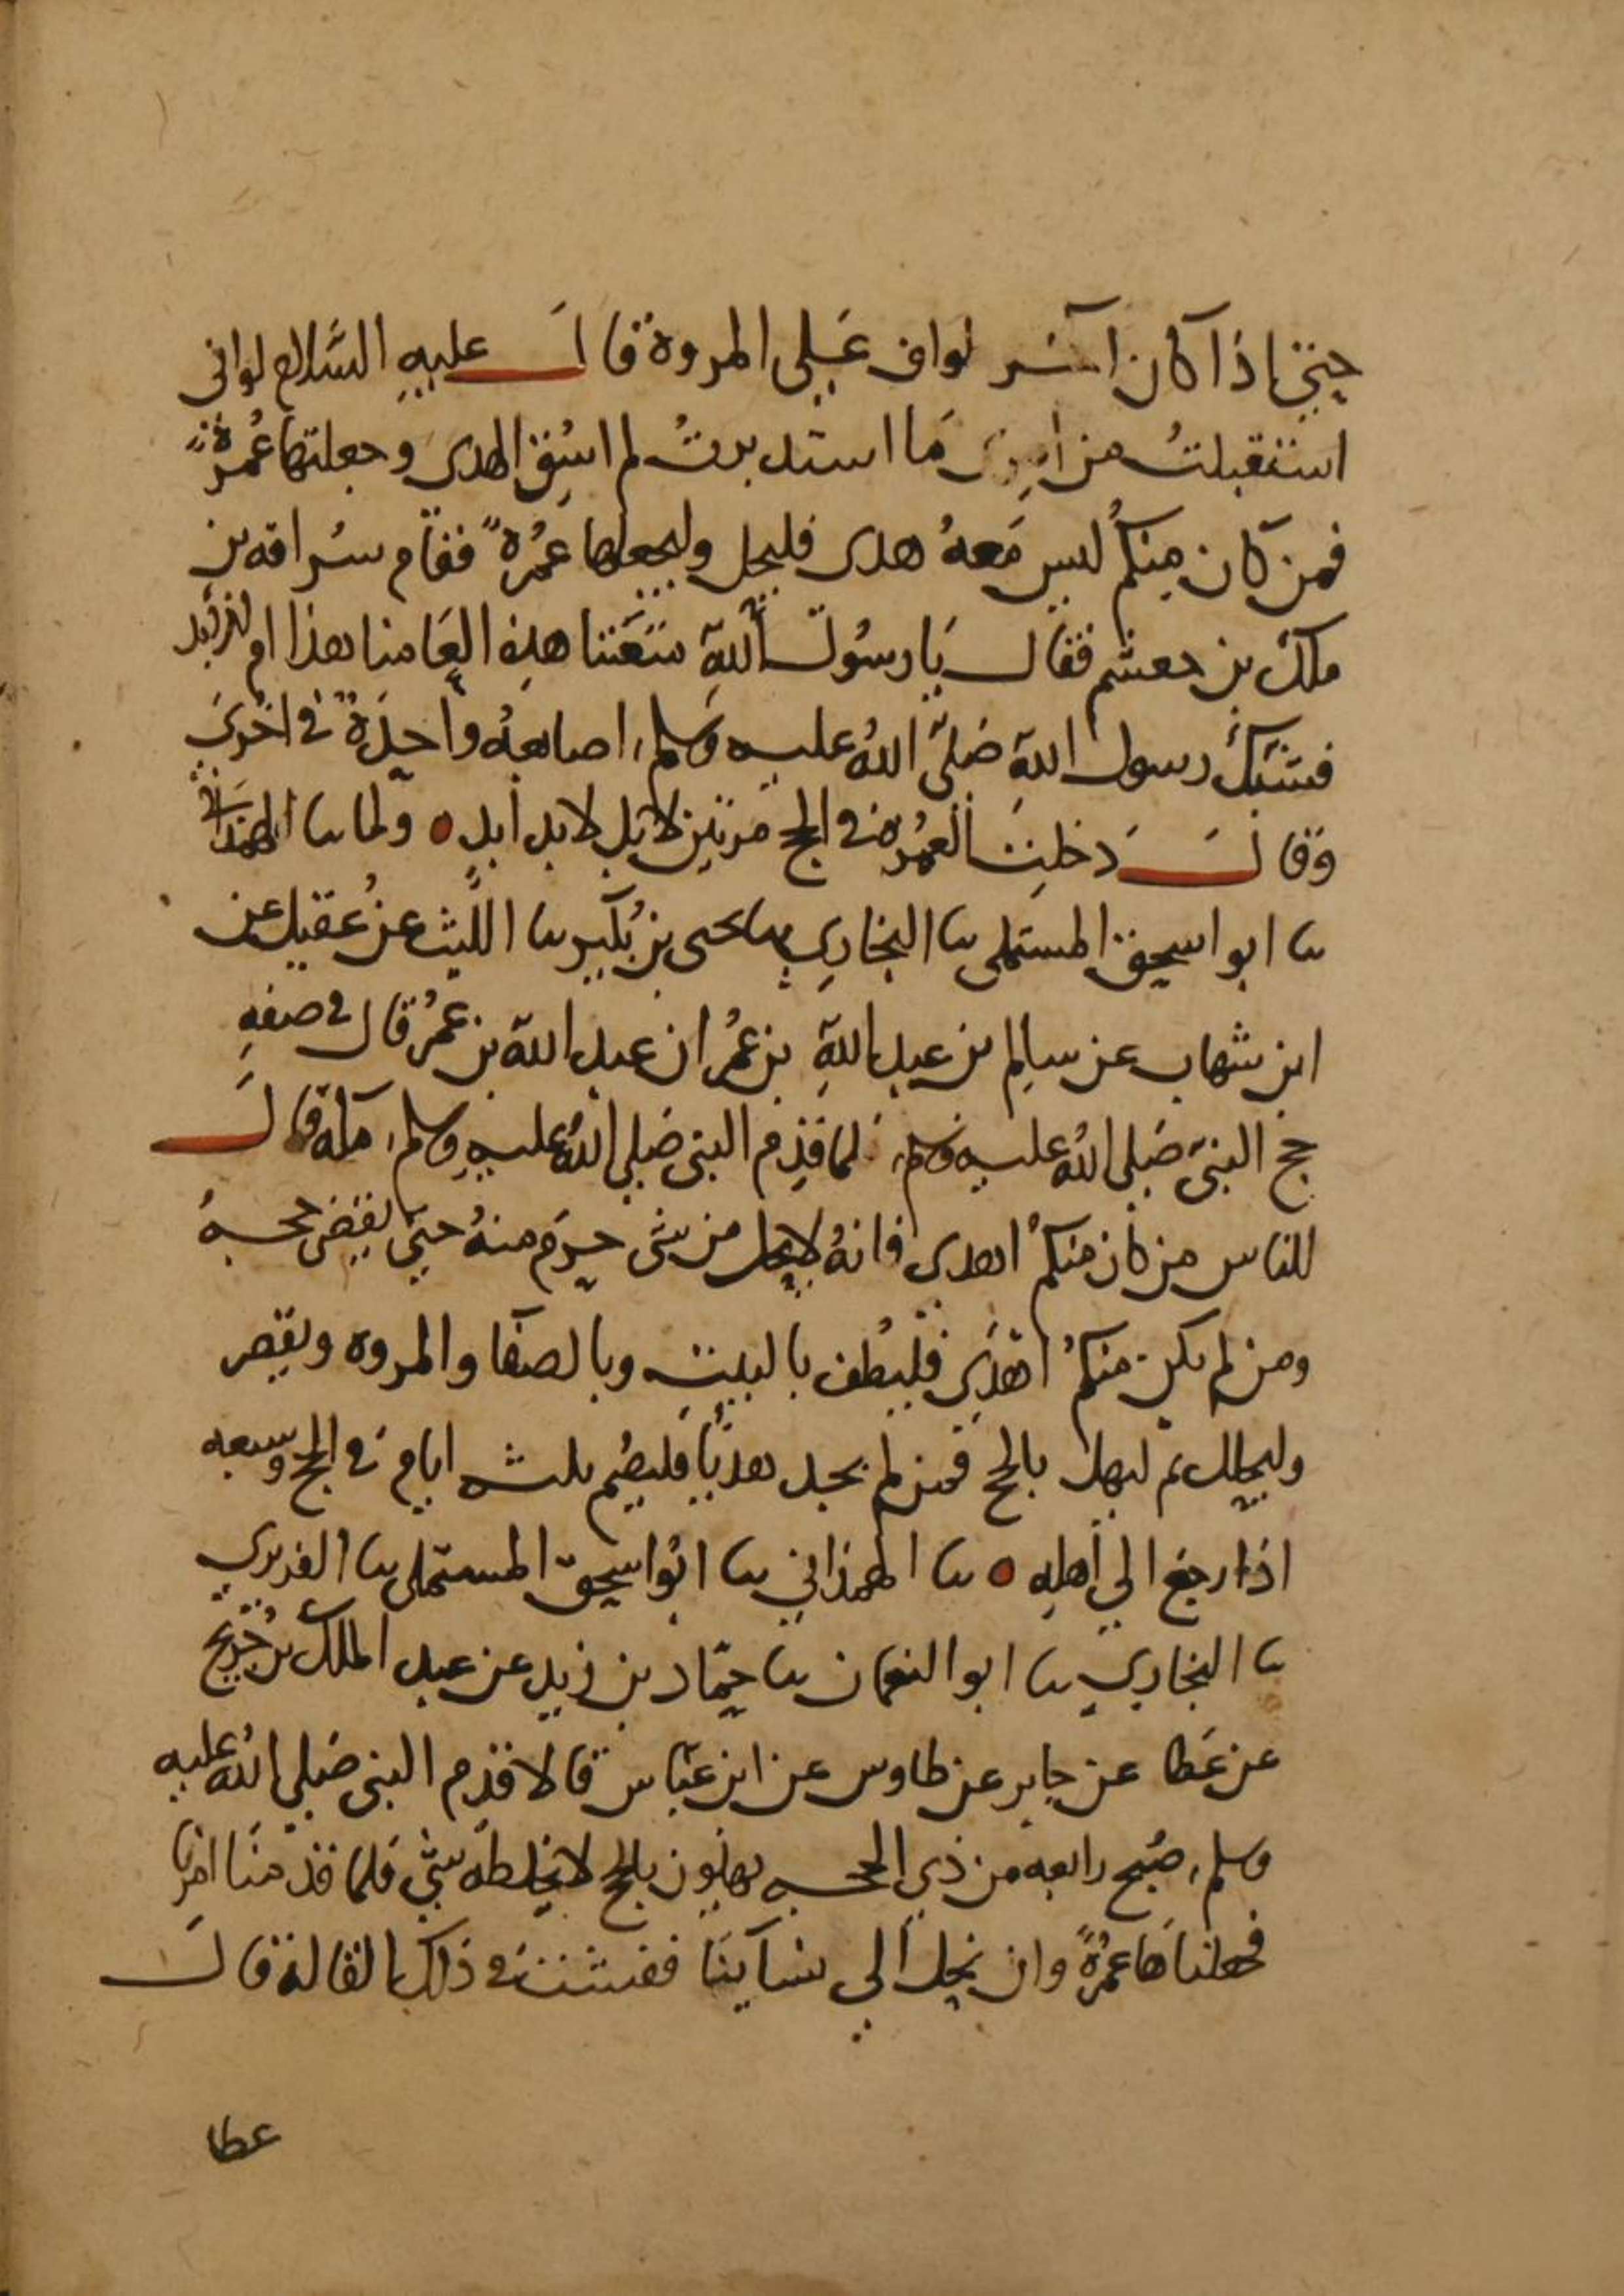 حتى اذا كان آخر طواف على المروة قال عليه السَّلام لو انى
استقبلتُ من امرى مَا استدبرتُ لم اسُق الهدى وجعلتها عُمرةً
فمن كان منكمُ ليس مَعهُ هدى فليحل وليجعلها عمُرةً فقام سُراقه بن
ملك بن جعشم فقال يَا رسُول اللهِ مُتعَتنا هذِه العَامنا هذا ام لابد
فشبك رسول اللهِ صَلى اللهُ عليه وسلم اصابعهُ واحِدَة في اخرَى
وقال دَخلت العمُرة في الحج مرتين لا بل لابد ابدٍ ٥ ولما نا الهمدانى
نا ابو اسحق المستملى نا البخاري نا يحيى بن بُكير نا الليث عن عُقيل عن
ابن شهاب عن سالم بن عبد اللهِ بن عمُر ان عبد الله بن عمُر قال في صفهِ
حج النبىّ صَلى اللهُ عليه وسلم لما قدِم النبى صَلى اللهُ عليهِ وسلم مكه قال
للناس من كان منكمُ اهدى فانهُ لا يحل من شى حرم منهُ حتى يقضى حجه
ومن لم يكن منكمُ اهْدَى فليطُف بالبيتِ وبالصفَا والمروه ويقصر
وليحلل ثم ليهل بالحج فمن لم يجد هدْيًا فليصُم ثلثه ايام في الحج وسبعه
اذا رجع الى أهلِه ٥ نا الهمذاني نا ابُو اسحق المستملى نا الفربري
نا البخاري نا ابو النعمان نا حمّاد بن زيد عن عبد الملك بن جُريج
عن عَطا عن جابر عن طاوس عن ابن عبّاس قالا قدِم النبى صَلى اللهُ عليه
وسلم صبُح رابعه من ذي الحجه يهلون بالحج لا يخلطه شئ فلما قدمنَا امرنا
فجعلناهَا عمُرةً وان نحِل الى نسآينَا ففشت في ذلك القالة قال
عطا